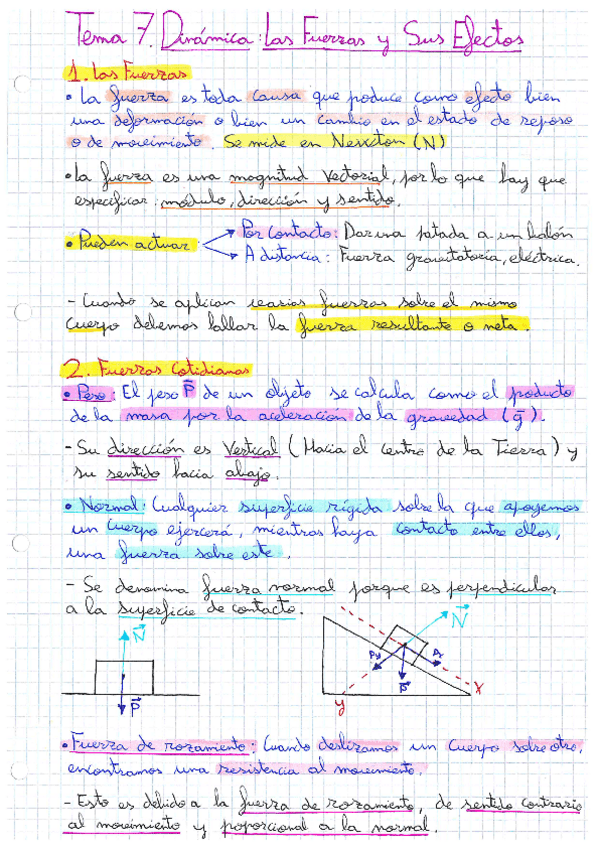 Tema 7. Dinámica: Las Fuerzas y Sus Efectos
1. Las Fuerzas
• La fuerza es toda causa que produce como efecto bien
una deformación o bien un cambio en el estado de reposo
o de movimiento. Se mide en Newton (N)
• La fuerza es una magnitud vectorial, por lo que hay que
especificar: módulo, dirección y sentido.
• Pueden actuar
Por contacto: Dar una patada a un balón
A distancia: Fuerza gravitatoria, eléctrica.
- Cuando se aplican varias fuerzas sobre el mismo
cuerpo debemos hallar la fuerza resultante o neta.
2. Fuerzas Cotidianas
• Peso: El peso P⃗ de un objeto se calcula como el producto
de la masa por la aceleración de la gravedad (g⃗).
- Su dirección es Vertical (Hacia el centro de la Tierra) y
su sentido hacia abajo.
• Normal: Cualquier superficie rígida sobre la que apoyemos
un cuerpo ejercerá, mientras haya contacto entre ellos,
una fuerza sobre este.
- Se denomina fuerza normal porque es perpendicular
a la superficie de contacto.
N⃗
P⃗
N⃗
Py
Px
P⃗
x
y
• Fuerza de rozamiento: Cuando deslizamos un cuerpo sobre otro,
encontramos una resistencia al movimiento.
- Esto es debido a la fuerza de rozamiento, de sentido contrario
al movimiento y proporcional a la normal.